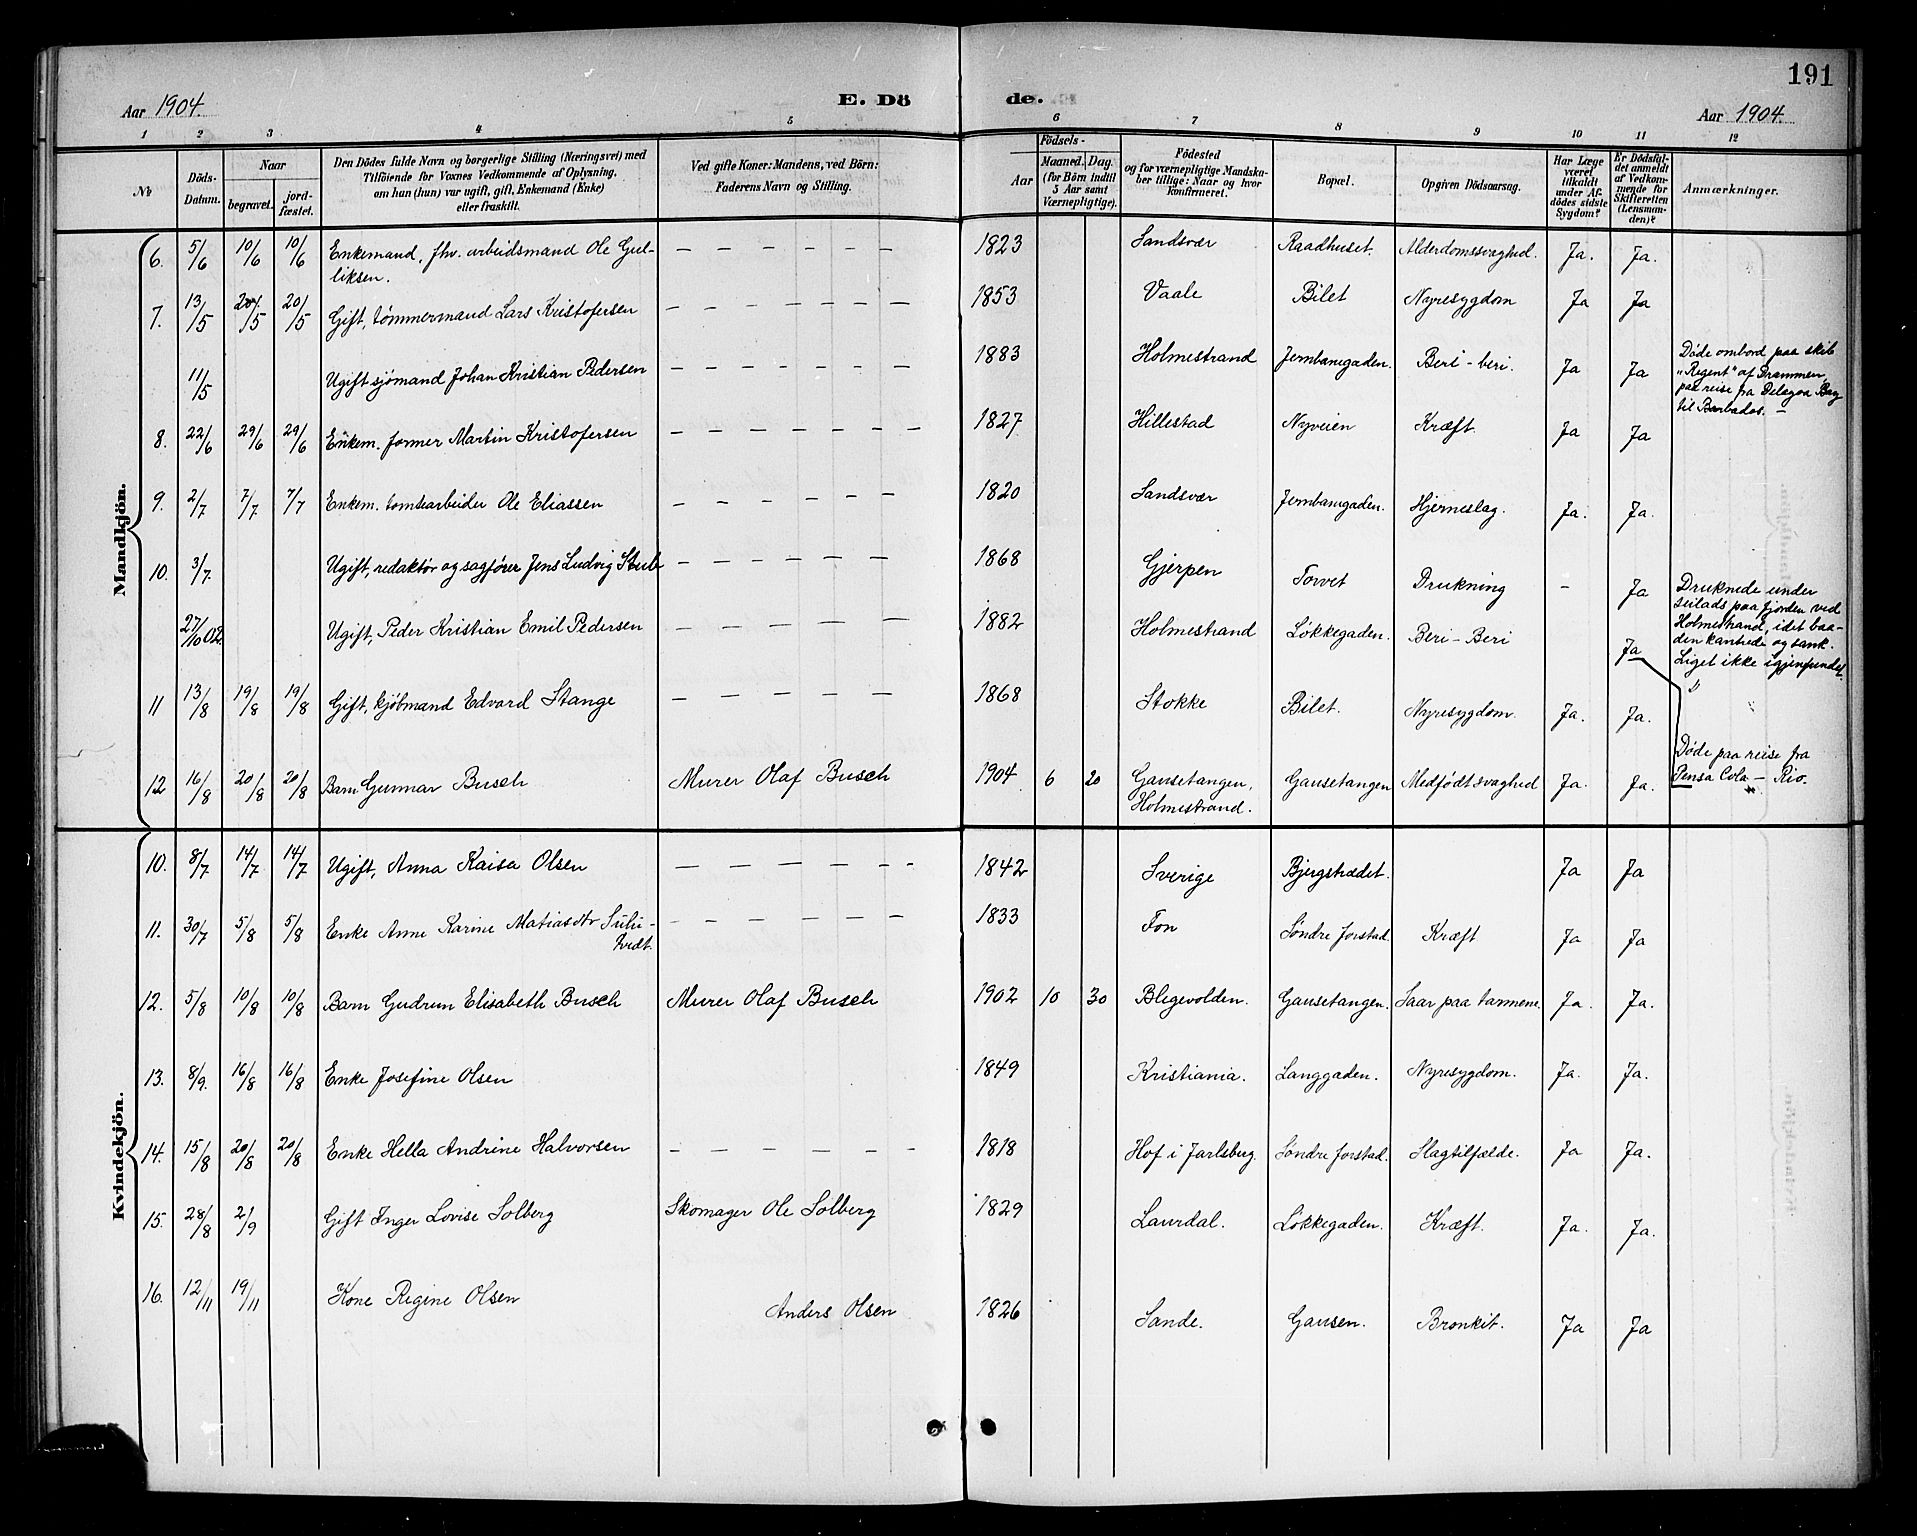 191
Aar 1904. E. Dö de. Aar 1904.
1 2 3 4 5 6 7 8 9 10 11 12
No
Döds-Datum.
Naar begravet. jord-fæstet.
Den Dödes fulde Navn og borgerlige Stilling (Næringsvei) med
Tilföiende for Voxnes Vedkommende af Oplysning,
om han (hun) var ugift, gift, Enkemand (Enke)
eller fraskilt.
Ved gifte Koner: Mandens, ved Börn:
Faderens Navn og Stilling.
Födsels-
Aar Maaned. Dag.
(for Börn indtil
5 Aar samt
Værnepligtige).
Födested
og for værnepligtige Mandska-
ber tillige: Naar og hvor
konfirmeret.
Bopæl.
Opgiven Dödsaarsag.
Har Læge
været
tilkaldt
under Af-
dödes sidste
Sygdom?
Er Dödsfal-
det anmeldt
af Vedkom-
mende for
Skifteretten
(Lensman-
den)?
Anmærkninger.
Mandkjön.
6. 5/6 10/6 10/6 Enkemand, fhv. arbeidsmand Ole Gul-
liksen. — — — — — — 1823 Sandsvær Raadhuset. Alderdomssvaghed. Ja. Ja.
7. 13/5 20/5 20/5 Gift, tømmermand Lars Kristofersen — — — — — — — 1853 Vaale Bilet Nyresygdom Ja Ja
11/5 Ugift sjømand Johan Kristian Pedersen — — — — — — — 1883 Holmestrand Jernbanegaden. Beri-beri. Ja Ja
Døde ombord paa skib
"Regent" af Drammen,
paa reise fra Delagoa Bay
til Barbados. —
8. 22/6 29/6 29/6 Enkem. former Martin Kristofersen — — — — — — — 1827 Hillestad Nyveien Kræft. Ja Ja
9. 2/7 7/7 7/7 Enkem. tomtearbeider Ole Eliassen — — — — — — 1820 Sandsvær Jernbanegaden. Hjerneslag. Ja. Ja.
10. 3/7. Ugift, redaktør og sagfører Jens Ludvig Stub — — — — — — 1868 Gjerpen Torvet Drukning — Ja
Druknede under
seilads paa fjorden ved
Holmestrand, idet baa-
den kantrede og sank.
Liget ikke igjenfundet.
27/10 02. Ugift, Peder Kristian Emil Pedersen — — — — — — 1882 Holmestrand Løkkegaden. Beri-Beri Ja
11 13/8 19/8 19/8 Gift, kjøbmand Edvard Stange — — — — — — 1868 Stokke Bilet. Nyresygdom. Ja. Ja. "
12 16/8 20/8 20/8 Barn Gunnar Busch Murer Olaf Busch 1904 6 20 Gausetangen,
Holmestrand. Gausetangen Medfødt svaghed Ja. Ja.
Døde paa reise fra
Pensa Cola — Rio.
Kvindekjön.
10. 8/7 14/7 14/7 Ugift, Anna Kaisa Olsen — — — — - - 1842 Sverige Bjergstrædet. Ja Ja
11. 30/7 5/8 5/8 Enke Anne Karine Matiasdtr
- — — — — — — 1833 Fon Søndre forstad. Kræft Ja Ja
12. 5/8 10/8 10/8 Barn Gudrun Elisabeth Busch Murer Olaf Busch 1902 10 30 Blegevolden. Gausetangen. Saar paa tarmene. Ja. Ja.
13. 8/9. 16/8 16/8 Enke Josefine Olsen 1849 Kristiania. Langgaden. Nyresygdom. Ja. Ja.
14. 15/8 20/8 20/8 Enke Hella Andrine Halvorsen — — — — - - - 1818 Hof i Jarlsberg. Søndre forstad. Slagtilfælde. Ja Ja.
15. 28/8 2/9 Gift Inger Lovise Solberg Skomager Ole Solberg 1829 Laurdal. Løkkegaden. Kræft. Ja. Ja.
16. 12/11 19/11 Kone Regine Olsen Anders Olsen 1826 Sande. Gausen. Bronkit. Ja Ja